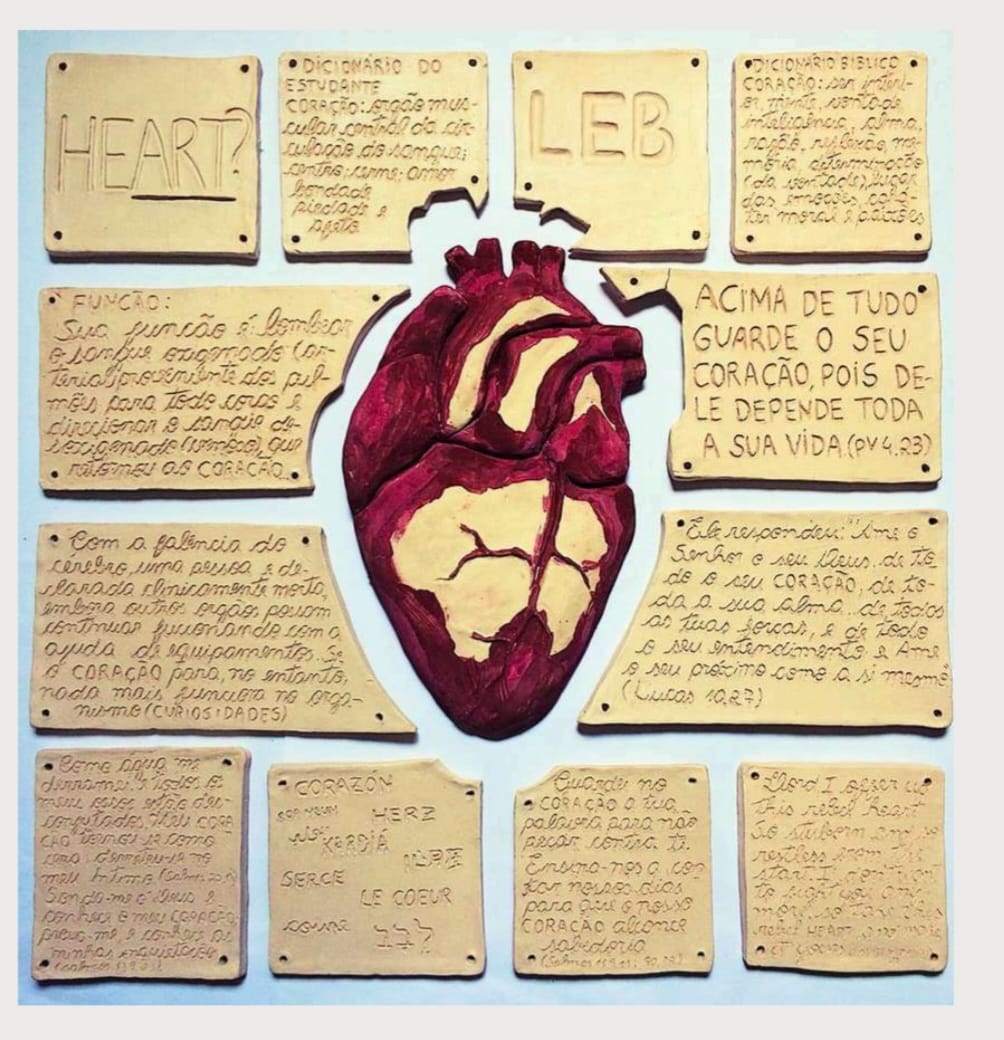 HEART?
DICIONÁRIO DO
ESTUDANTE
CORAÇÃO: orgão mus-
cular central da cir-
culação do sangue;
centro; cerne; amor
bondade
piedade e
afeto.
LEB
DICIONÁRIO BÍBLICO
CORAÇÃO: ser interi-
or, mente, vontade,
inteligência, alma,
razão, reflexão, me-
mória, determinação
(da vontade), lugar
das emoções, cará-
ter moral e paixões
FUNÇÃO:
Sua função é: bombear
o sangue oxigenado (ar-
terial) proveniente dos pul-
mões para todo corpo e
direcionar o sangue de-
soxigenado (venoso), que
retornou ao CORAÇÃO...
ACIMA DE TUDO
GUARDE O SEU
CORAÇÃO, POIS DE-
LE DEPENDE TODA
A SUA VIDA.(PV 4.23)
Com a falência do
cérebro, uma pessoa é de-
clarada clinicamente morta,
embora outros orgãos possam
continuar funcionando com a
ajuda de equipamentos. Se
o CORAÇÃO para, no entanto,
nada mais funciona no orga-
nismo (CURIOSIDADES)
Ele respondeu: "Ame o
Senhor o seu Deus, de to
do o seu CORAÇÃO, de to-
da a sua alma, de todas
as tuas forças, e de todo
o seu entendimento e Ame
o seu próximo como a si mesmo
(Lucas 10,27)
Como água me
derramei, e todos os
meus ossos estão des-
conjutados. Meu CORA
ÇÃO tornou-se como
cera; derreteu-se no
meu íntimo (Salmos
Sonda-me ó Deus e
conhece o meu CORAÇÃO;
prova-me, e conhece as
minhas inquietações
(Salmos 139.23)
CORAZÓN
HERZ
KARDIÁ
SERCE
LE COEUR
cuore
Guardei no
CORAÇÃO a tua
palavra para não
pecar contra ti.
Ensina-nos a con
tar nossos dias
para que o nosso
CORAÇÃO alcance
sabedoria
(Salmos 119.11; 90.12)
Lord I offer up
this rebel heart
so stuborn and so
restless from the
start I don't want
to fight you any
more, so take this
rebel HEART,